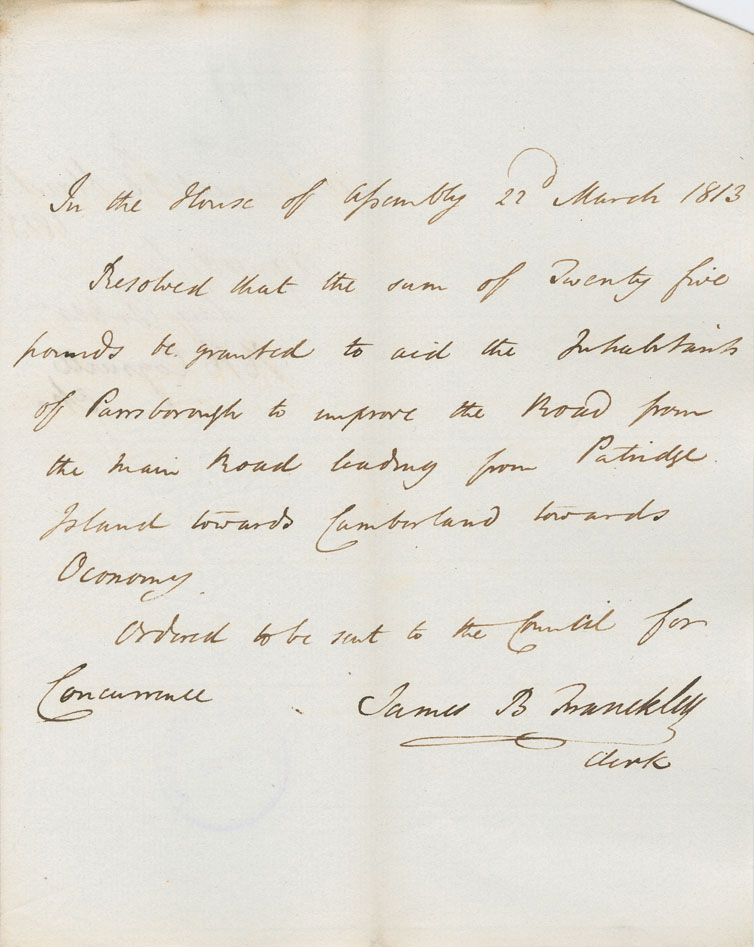 In the House of Assembly 22d March 1813
Resolved that the sum of Twenty five
pounds be granted to aid the Inhabitants
of Parrsborough to improve the Road from
the Main Road leading from Patridge
Island towards Cumberland towards
Oconomy
Ordered to be sent to the Council for
Concurrence
James B Franckley
Clerk